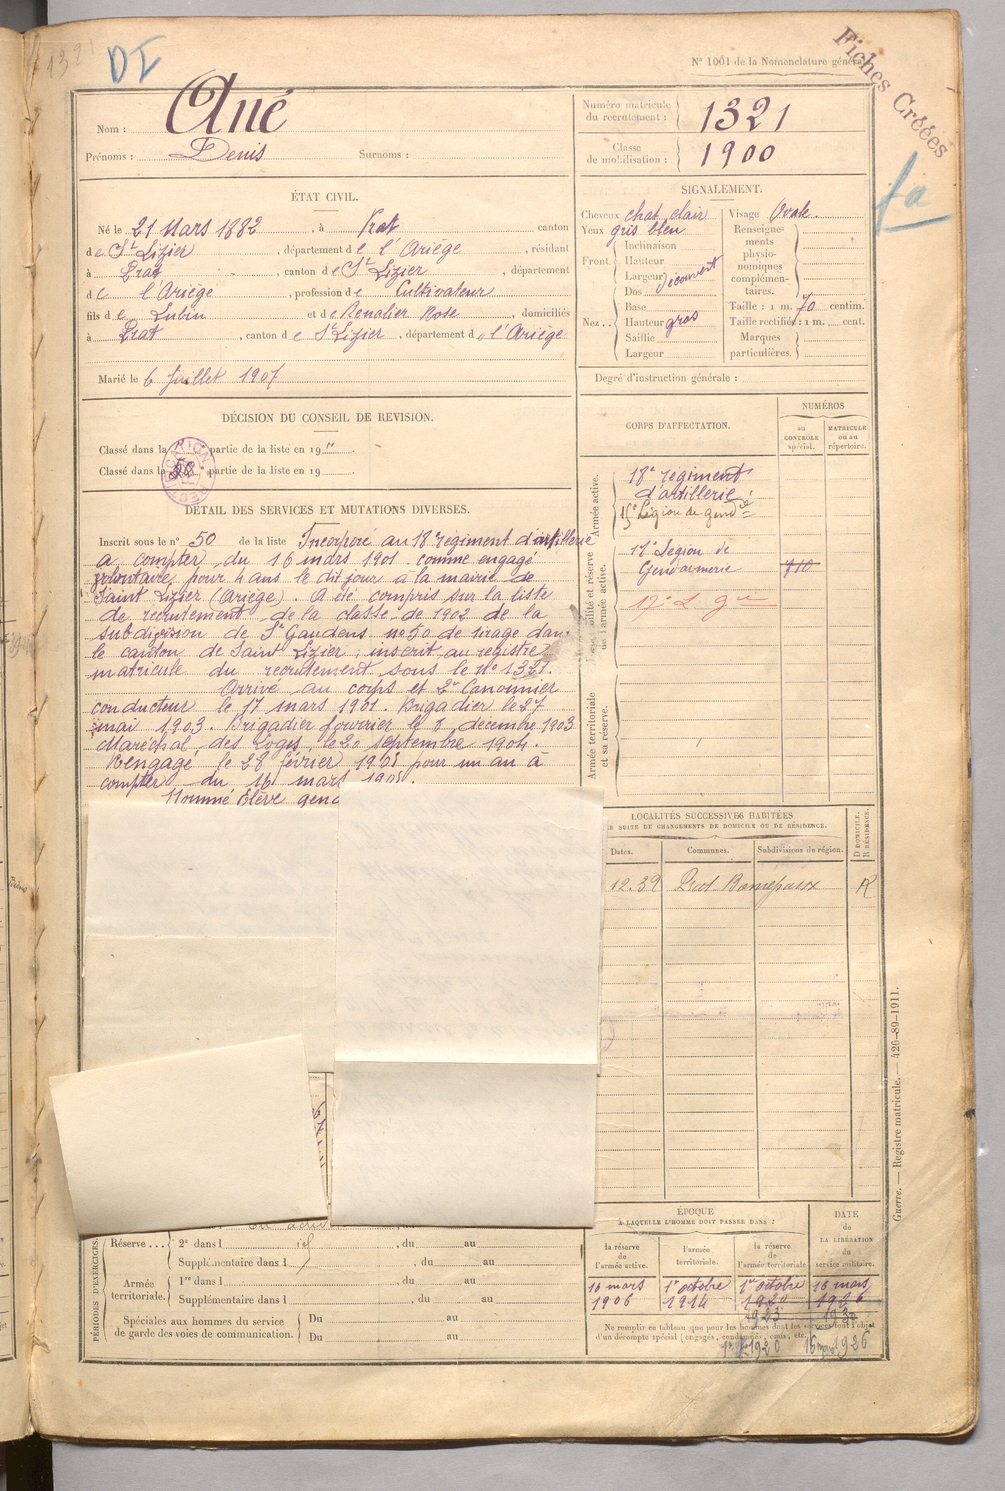 1321
DI
N° 1001 de la Nomenclature
Fiches Créées
fa
Nom : Ané
Prénoms : Denis Surnoms :
Numéro matricule du recrutement : 1321
Classe de mobilisation : 1900
ÉTAT CIVIL.
Né le 21 Mars 1882, à Prat canton
de St Lizier, département de l'Ariège, résidant
à Prat, canton de St Lizier, département
de l'Ariège, profession de Cultivateur
fils de Lubin et de Renalier Rose, domiciliés
à Prat, canton de St Lizier, département de l'Ariège
Marié le 6 Juillet 1907
SIGNALEMENT.
Cheveux chat clair
Yeux gris bleu
Front. Inclinaison
Hauteur
Largeur découvert
Nez . . Dos
Base
Hauteur gros
Saillie
Largeur
Visage Ovale.
Renseignements physionomiques complémentaires.
Taille : 1 m. 70 centim.
Taille rectifiée : 1 m. cent.
Marques particulières.
Degré d'instruction générale :
DÉCISION DU CONSEIL DE REVISION.
Classé dans la partie de la liste en 19 " .
Classé dans la partie de la liste en 19 .
DÉTAIL DES SERVICES ET MUTATIONS DIVERSES.
Inscrit sous le n° 50 de la liste Incorporé au 18e regiment d'artillerie
a compter du 16 mars 1901 comme engagé
volontaire pour 4 ans le dit jour à la mairie de
Saint Lizier (Ariège). A été compris sur la liste
de recrutement de la classe de 1902 de la
subdivision de St Gaudens n° 50 de tirage dans
le canton de Saint Lizier ; inscrit au registre
matricule du recrutement sous le n° 1321.
Arrivé au corps et 2e Canonnier
conducteur le 17 mars 1901. Brigadier le 27
mai 1903. Brigadier fourrier le 8 décembre 1903
Maréchal des Logis le 20 septembre 1904.
Rengagé le 28 février 1905 pour un an à
compter du 16 mars 1905.
Nommé Elève
CORPS D'AFFECTATION.
NUMÉROS
au CONTRÔLE spécial.
MATRICULE ou au répertoire.
Armée active.
18e regiment
d'artillerie
15e Légion de Gendie
Disponibilité et réserve de l'armée active.
17e Legion de
Gendarmerie 710
17e L. gie
Armée territoriale et sa réserve.
LOCALITÉS SUCCESSIVES HABITÉES
PAR SUITE DE CHANGEMENTS DE DOMICILE OU DE RÉSIDENCE.
Dates. Communes. Subdivisions de région. D DOMICILE. R RÉSIDENCE.
12.39 Prat Bonrepaux R
PÉRIODES D'EXERCICES.
Réserve . . . 2e dans l , du au
Supplémentaire dans l , du au
Armée territoriale. 1re dans l , du au
Supplémentaire dans l , du au
Spéciales aux hommes du service de garde des voies de communication. Du au
Du au
ÉPOQUE
À LAQUELLE L'HOMME DOIT PASSER DANS :
la réserve de l'armée active.
l'armée territoriale.
la réserve de l'armée territoriale
DATE de LA LIBÉRATION du service militaire.
16 mars 1906
1er octobre 1914
1er octobre 1920
16 mars 1926
1923
Ne remplir ce tableau que pour les hommes dont les services font l'objet
d'un décompte spécial (engagés, condamnés, omis, etc.
1920 16 mars 1926
Guerre. — Registre matricule. — 426-89-1911.